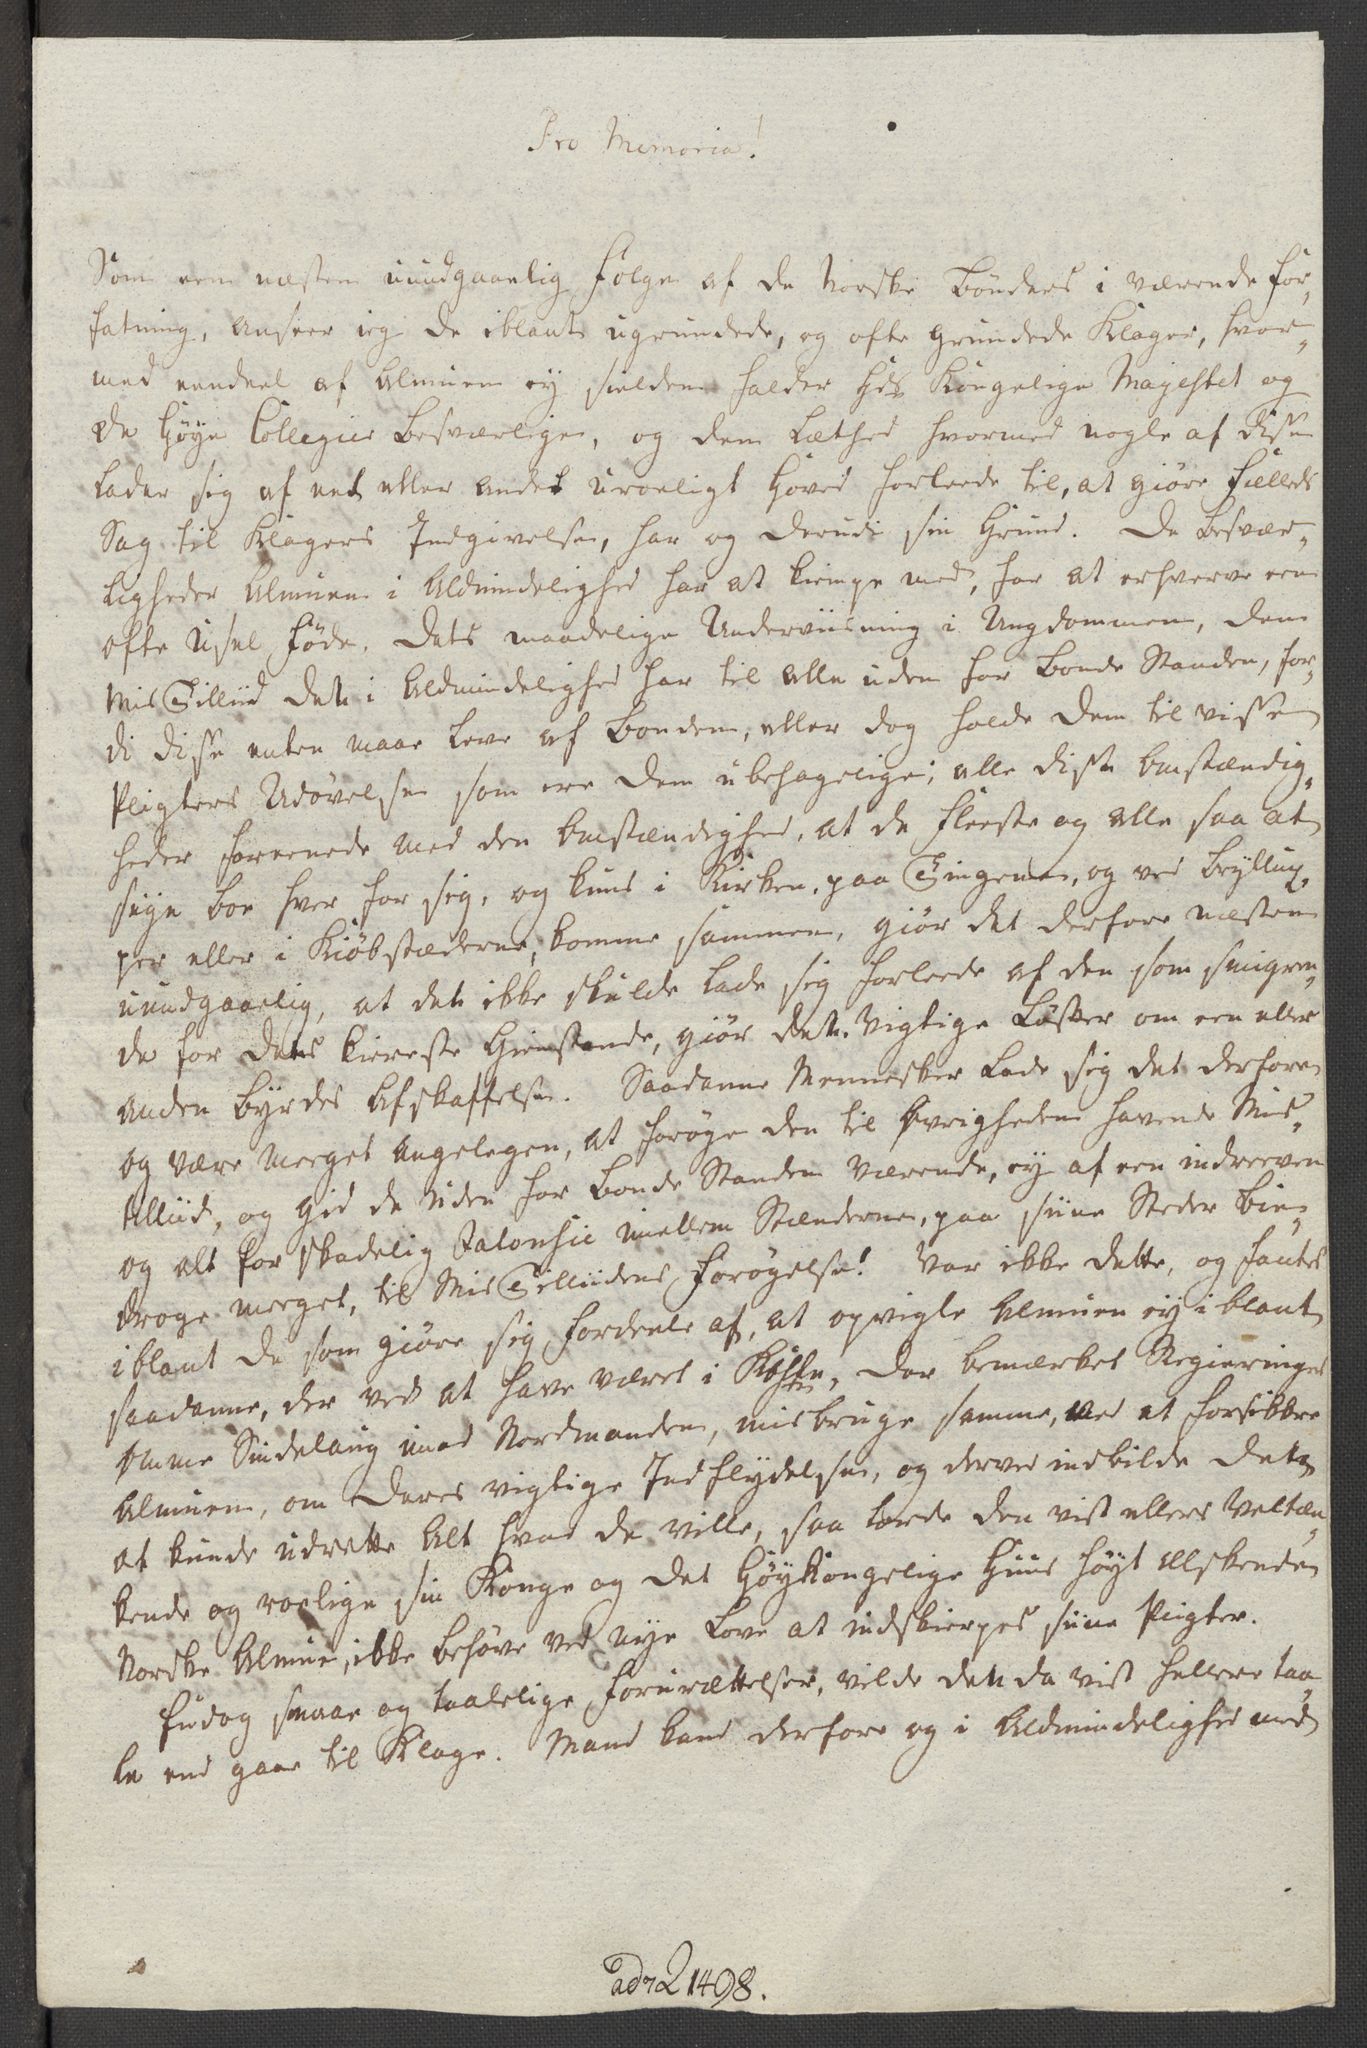 Pro Memoria!
Som een næsten uundgaaelig Følge af de Norske Bønders i værende For-
fatning, anseer jeg de iblant ugrundede, og ofte grundede Klager, hvor-
med eendeel af Almuen ey sielden falder Hds Kongelige Mayestet og
de Høye Collegier besværlige, og den Læthed hvormed nogle af disse
lader sig af eet eller andet uroeligt Hoved forleede til, at giøre fælleds
Sag til Klagers Indgivelse, har og derudi sin Grund. De besvær-
ligheder Almuen i Aldmindelighed har at kiempe med, for at erhverve een
ofte usel Føde. Dets maadelige Underviisning i Ungdommen, den
Mis Tilliid det i Aldmindelighed har til alle uden for Bonde Standen, for-
di disse enten maae leve af Bonden, eller dog holde dem til visse
Pligters Udøvelse som ere dem ubehagelige; alle disse Omstændig-
heder foreenede med den Omstændighed, at de fleeste og alle saa at
sige boe hver for sig, og kuns i Kirken, paa Tingene, og ved Bryllup-
per eller i Kiøbstæderne, komme sammen, giør det derfore næsten
uundgaaelig, at det ikke skulde lade sig forleede af den som smigren-
de for dets kiereste Gienstande, giør det vigtige Løfter om een eller
anden Byrdes Afskaffelse. Saadanne Mennesker lade sig det derfore
og være meeget angelegen, at forøge den til Øvrigheden havende Mis-
tilliid, og gid de uden for Bonde Standen værende, ey af een indreeven
og alt for skadelig Jalousie imellem Stænderne, paa siine Steder bie-
droge meeget, til Mis Tilliidens Forøgelse! Var ikke dette, og fantes
iblant de som giøre sig Fordeele af, at opvigle Almuen ey iblant
saadanne, der ved at have været i Kbhfn, der bemærket Regieringes
ømme Sindelaug imod Nordmanden, misbruge samme, ved at forsikkre
Almuen, om deres vigtige Indflydelse, og derved indbilde det
at kunde udrette alt hvad de ville, saa torde den vist ellers veltæn-
kende og roelige sin Konge og det Høykongelige Huus høyt elskende
Norske Almue, ikke behøve ved nye Love at indskierpes siine Pligter.
Endog smaae og taalelige Forurættelser, vilde det da vist hellere taa-
le end gaae til Klage. Mand kand derfore og i Aldmindelighed med
ad 2 1498.